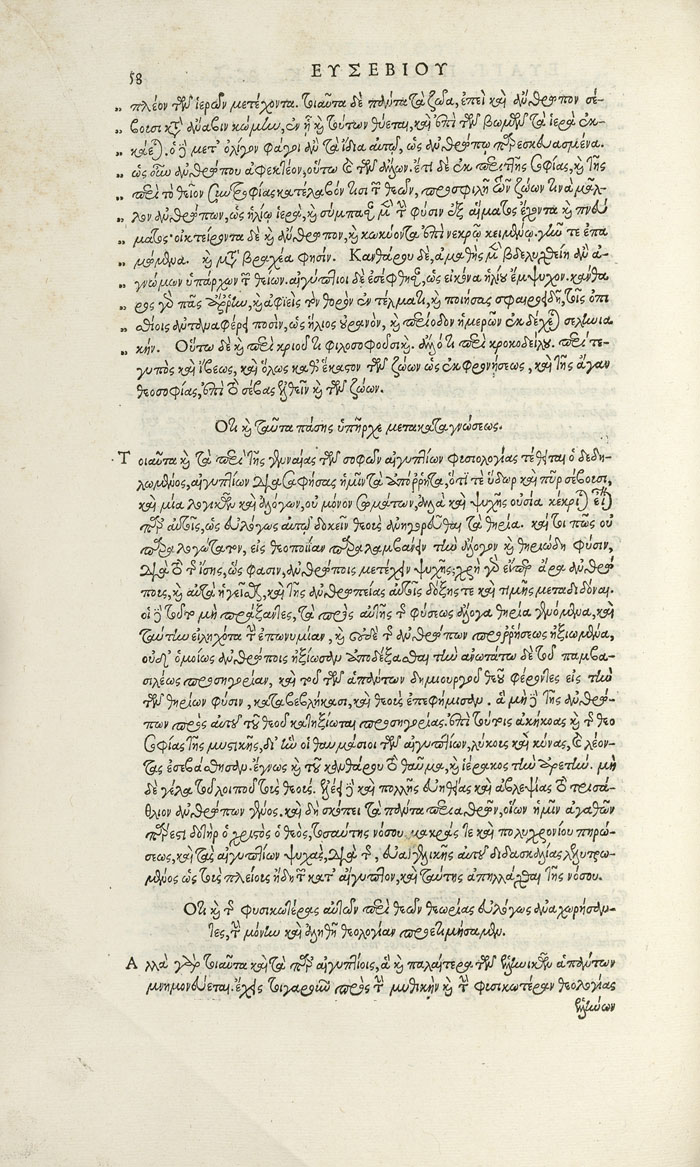 58 ΕΥΣΕΒΙΟΥ
„ πλέον τῶν ἱερῶν μετέχοντα. τοιαῦτα δὲ πάντα τὰ ζῶα, ἐπεὶ καὶ ἄνθρωπον σέ-
„ βουσι κατὰ ἄναβιν κώμην, ἐν ᾗ καὶ τούτων θύεται, καὶ ἐπὶ τῶν βωμῶν τὰ ἱερὰ ἐκ-
„ κάεται. ὁ δὲ μετ' ὀλίγον φάγοι ἂν τὰ ἴδια αὐτῷ, ὡς ἀνθρώπῳ παρεσκευασμένα.
„ ὡς οὖν ἀνθρώπου ἀφεκτέον, οὕτω καὶ τῶν ἄλλων. ἔτι δὲ ἐκ περιττῆς σοφίας, καὶ τῆς
„ περὶ τὸ θεῖον συντροφίας κατέλαβόν τισι τῶν θεῶν, προσφιλῆ τῶν ζώων τινὰ μᾶλ-
„ λον ἀνθρώπων, ὡς ἡλίῳ ἱερὰ, καὶ σύμπασαν μὲν τὴν φύσιν ἐξ αἵματος ἔχοντα καὶ πνεύ-
„ ματος· οἰκτείροντα δὲ καὶ ἄνθρωπον, καὶ κωκύοντα ἐπὶ νεκρῷ κειμένῳ. τε ἐπα
„ μώμενα. καὶ μετὰ βραχέα φησίν. Κανθάρου δὲ, ἀμαθὴς μὲν βδελυχθείη ἂν ἀ-
„ γνώμων ὑπάρχων τῶν θείων. αἰγύπτιοι δὲ ἐσέφθησαν, ὡς εἰκόνα ἡλίου ἔμψυχον. κάνθα
„ ρος γὰρ πᾶς ἄρρην, καὶ ἀφιεὶς τὸν θορὸν ἐν τέλματι, καὶ ποιήσας σφαιροειδῆ, τοῖς ὀπι
„ σθίοις ἀνταναφέρει ποσὶν, ὡς ἥλιος οὐρανὸν, καὶ περίοδον ἡμερῶν ἐκδέχεται σεληνια
„ κήν. Οὕτω δὲ καὶ περὶ κριοῦ τι φιλοσοφοῦσι καὶ ἄλλό τι περὶ κροκοδείλου. περί τε
γυπὸς καὶ ἴβεως, καὶ ὅλως καθ' ἕκαστον τῶν ζώων ὡς ἐκ φρονήσεως, καὶ τῆς ἄγαν
θεοσοφίας, ἐπὶ τὸ σέβας ἐλθεῖν καὶ τῶν ζώων.
Ὅτι καὶ ταῦτα πάσης ὑπῆρχε μετὰ καταγνώσεως.
Τοιαῦτα καὶ τὰ περὶ τῆς γενναίας τῶν σοφῶν αἰγυπτίων φυσιολογίας τέθειται ὁ δεδη-
λωμένος, αἰγυπτίων διασαφήσας ἡμῖν τὰ ἀπόρρητα, ὅτι τε ὕδωρ καὶ πῦρ σέβουσι,
καὶ μία λογικῶν καὶ ἀλόγων, οὐ μόνον σωμάτων, ἀλλὰ καὶ ψυχῆς οὐσία κέκριται εἶναι
παρ' αὐτοῖς, ὡς εὐλόγως αὐτῷ δοκεῖν θεοὺς ἀνηγορεῦσθαι τὰ θηρία. καίτοι πῶς οὐ
παραλογώτατον, εἰς θεοποιΐαν παραλαμβάνειν τὴν ἄλογον καὶ θηριώδη φύσιν,
διὰ τὸ τῆς ἴσης, ὥς φασιν, ἀνθρώποις μετέχειν ψυχῆς; χρῆν γὰρ εἴπερ ἄρα ἀνθρώ
ποις, καὶ αὐτὰ ἡγεῖσθαι, καὶ τῆς ἀνθρωπείας αὐτοῖς δόξης τε καὶ τιμῆς μεταδιδόναι.
οἱ δὲ τοῦτο μὴ πράξαντες, τὰ πρὸς αὐτῆς τῆς φύσεως ἄλογα θηρία γενόμενα, καὶ
ταύτην εἰληχότα τὴν ἐπωνυμίαν, καὶ οὐδὲ τῆς ἀνθρώπων προσρήσεως ἠξιωμένα,
οὐδ' ὁμοίως ἀνθρώποις ἠξίωσαν ἀποδέξασθαι τὴν ἀνωτάτω δὲ τοῦ παμβα-
σιλέως προσηγορίαν, καὶ τοῦ τῶν ἁπάντων δημιουργοῦ θεοῦ φέροντες εἰς τὴν
τῶν θηρίων φύσιν, καταβεβλήκασι, καὶ θεοὺς ἐπεφήμισαν. ἃ μὴ δὲ τῆς ἀνθρώ-
πων πρὸς αὐτοῦ τοῦ θεοῦ κατηξίωται προσηγορίας. ἐπὶ τούτοις ἀκήκοας καὶ τῆς θεο
σοφίας τῆς μυστικῆς, δι' ἣν οἱ θαυμάσιοι τῶν αἰγυπτίων, λύκους καὶ κύνας, καὶ λέον-
τας ἐσεβάσθησαν. ἔγνως καὶ τοῦ κανθάρου τὸ θαῦμα, καὶ ἱέρακος τὴν ἀρετήν. μὴ
δὲ γέλα τοῦ λοιποῦ τοὺς θεούς. ἐλέει δὲ καὶ πολλῆς εὐηθείας καὶ ἀβλεψίας τὸ τρισά-
θλιον ἀνθρώπων γένος. καὶ δὴ σκόπει τὰ πάντα περιαθρῶν, οἵων ἡμῖν ἀγαθῶν
πάρεστι δοτὴρ ὁ χριστὸς ὁ θεὸς, τοσαύτης νόσου μακρᾶς τε καὶ πολυχρονίου πηρώ-
σεως, καὶ τὰς αἰγυπτίων ψυχὰς, διὰ τῆς, εὐαγγελικῆς αὐτοῦ διδασκαλίας λελυτρω-
μένος ὡς τοὺς πλείους ἤδη τῶν κατ' αἴγυπτον, καὶ ταύτης ἀπηλλάχθαι τῆς νόσου.
Ὅτι καὶ τῆς φυσικωτέρας αὐτῶν περὶ θεῶν θεωρίας εὐλόγως ἀναχωρήσαν-
τες, τὴν μόνην καὶ ἀληθῆ θεολογίαν προετιμήσαμεν.
Ἀλλὰ γὰρ τοιαῦτα καὶ τὰ παρ' αἰγυπτίοις, ἃ καὶ παλαίτερα τῶν ἑλληνικῶν ἁπάντων
μνημονεύεται. ἔχεις τοιγαροῦν πρὸς τῇ μυθικῇ καὶ τὴν φυσικωτέραν θεολογίας
ἑλλήνων